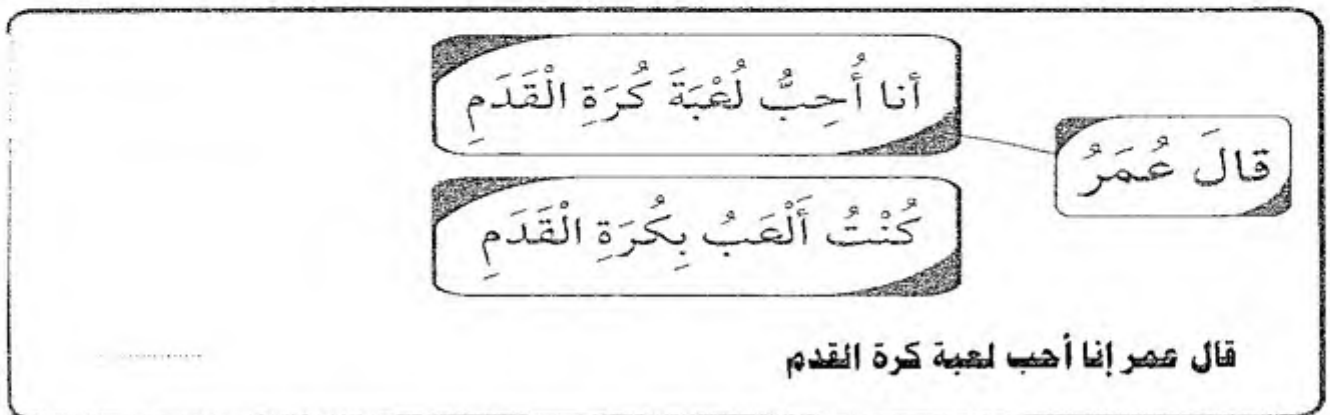 أنا أُحِبُّ لُعْبَةَ كُرَةِ الْقَدَمِ
قالَ عُمَرُ
كُنْتُ أَلْعَبُ بِكُرَةِ الْقَدَمِ
قال عمر إنا أحب لعبة كرة القدم